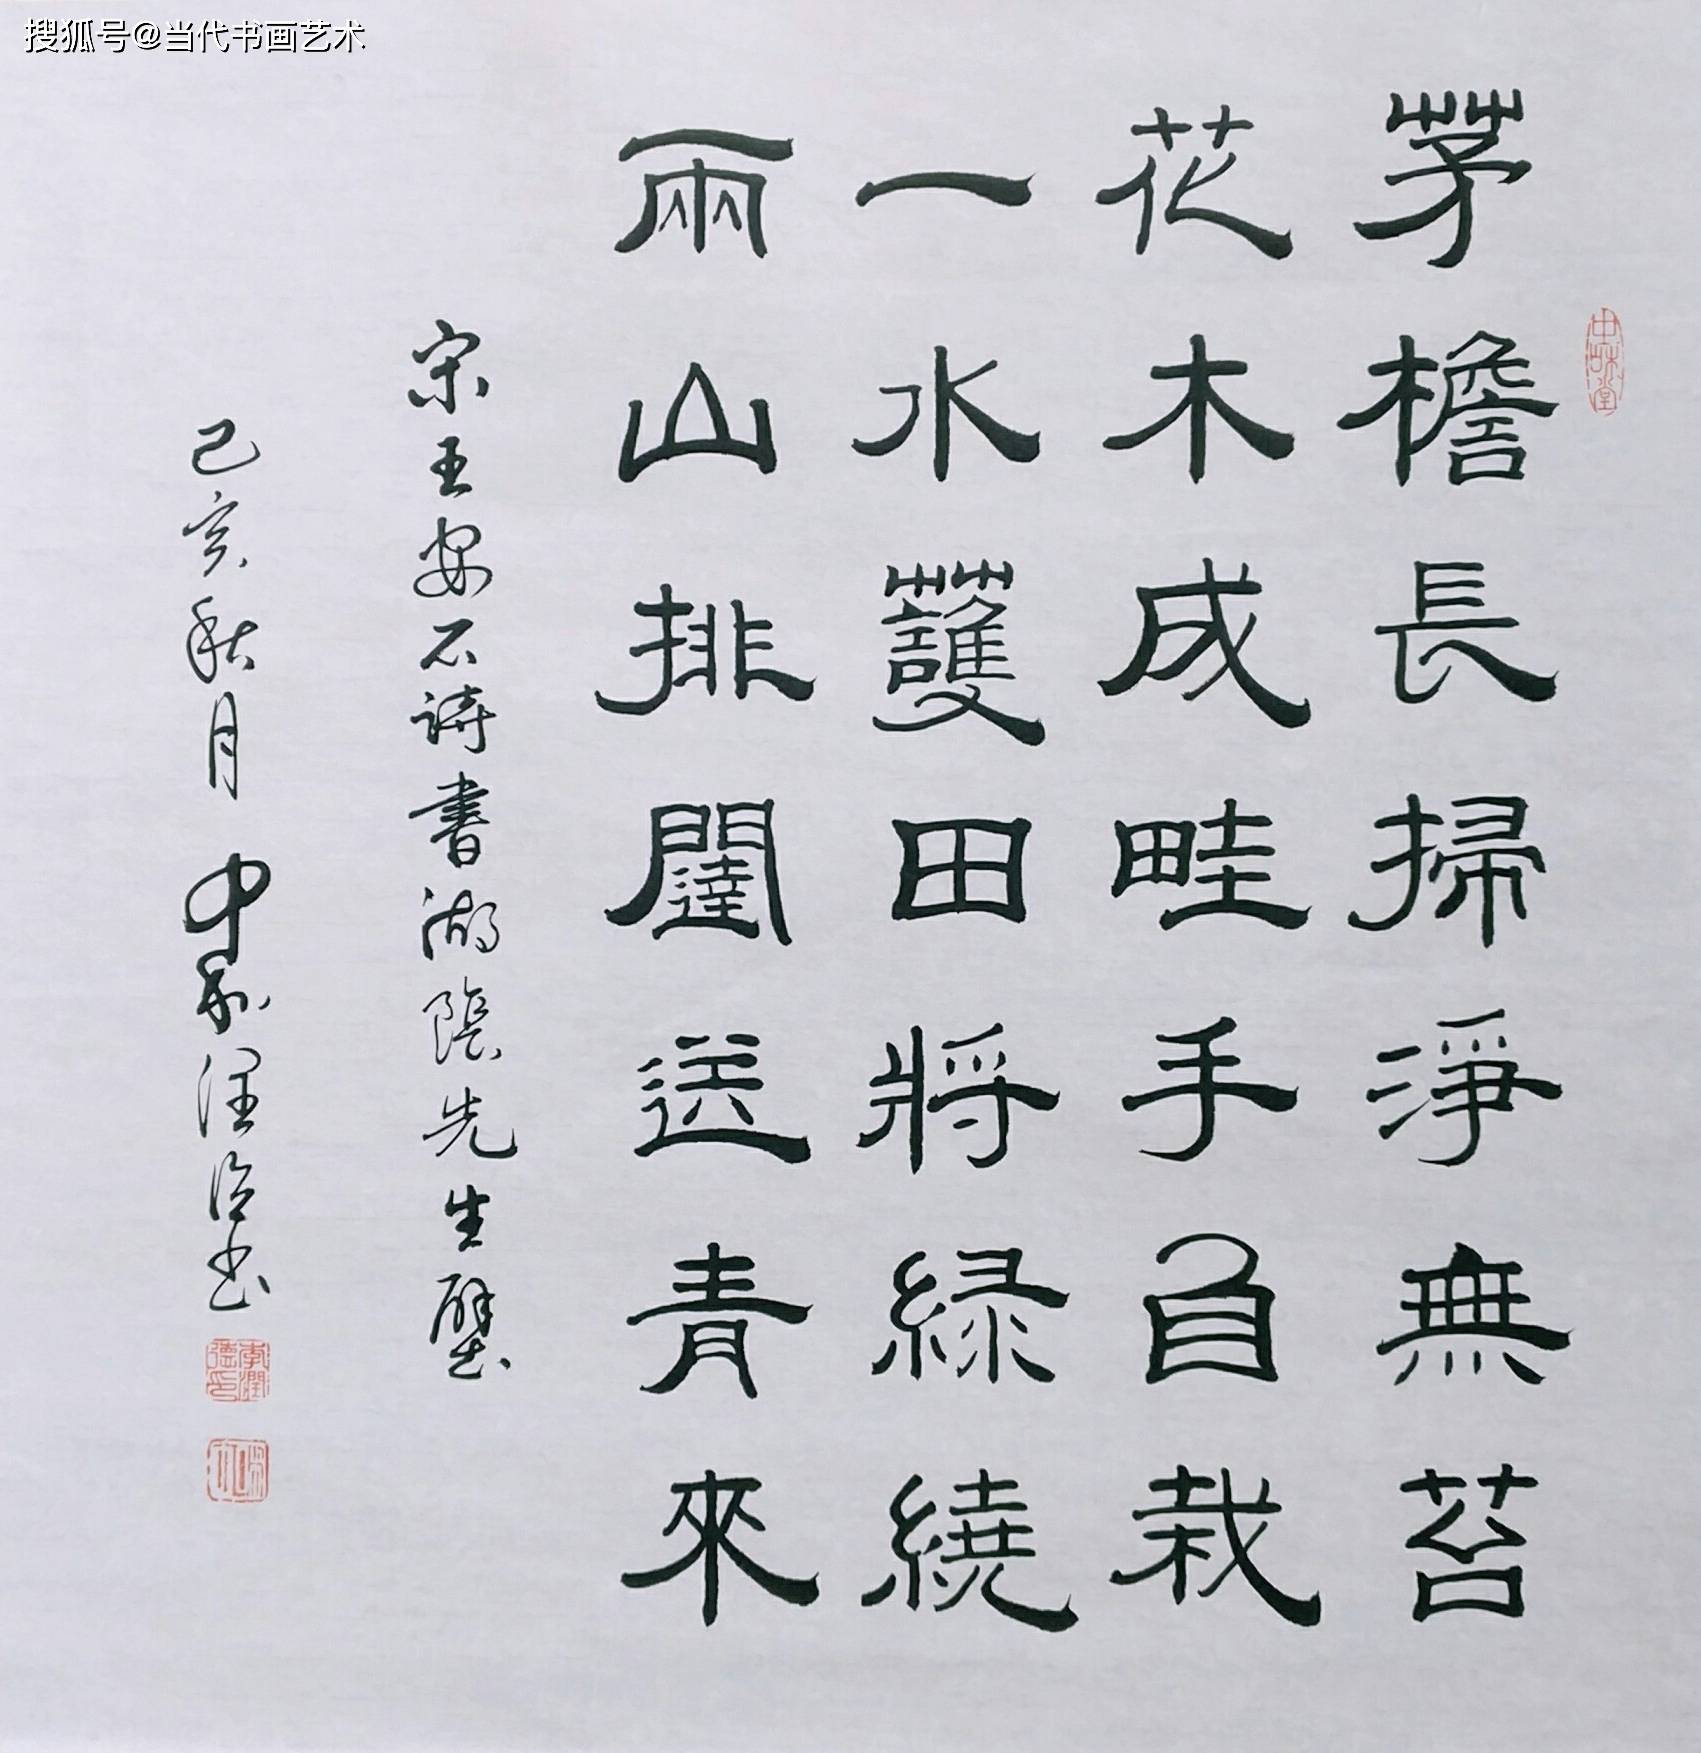 搜狐号@当代书画艺术
茅檐長掃淨無苔
花木成畦手自栽
一水護田將緑繞
兩山排闥送青來
宋王安石詩書湖陰先生壁
己亥秋月中和潤德書